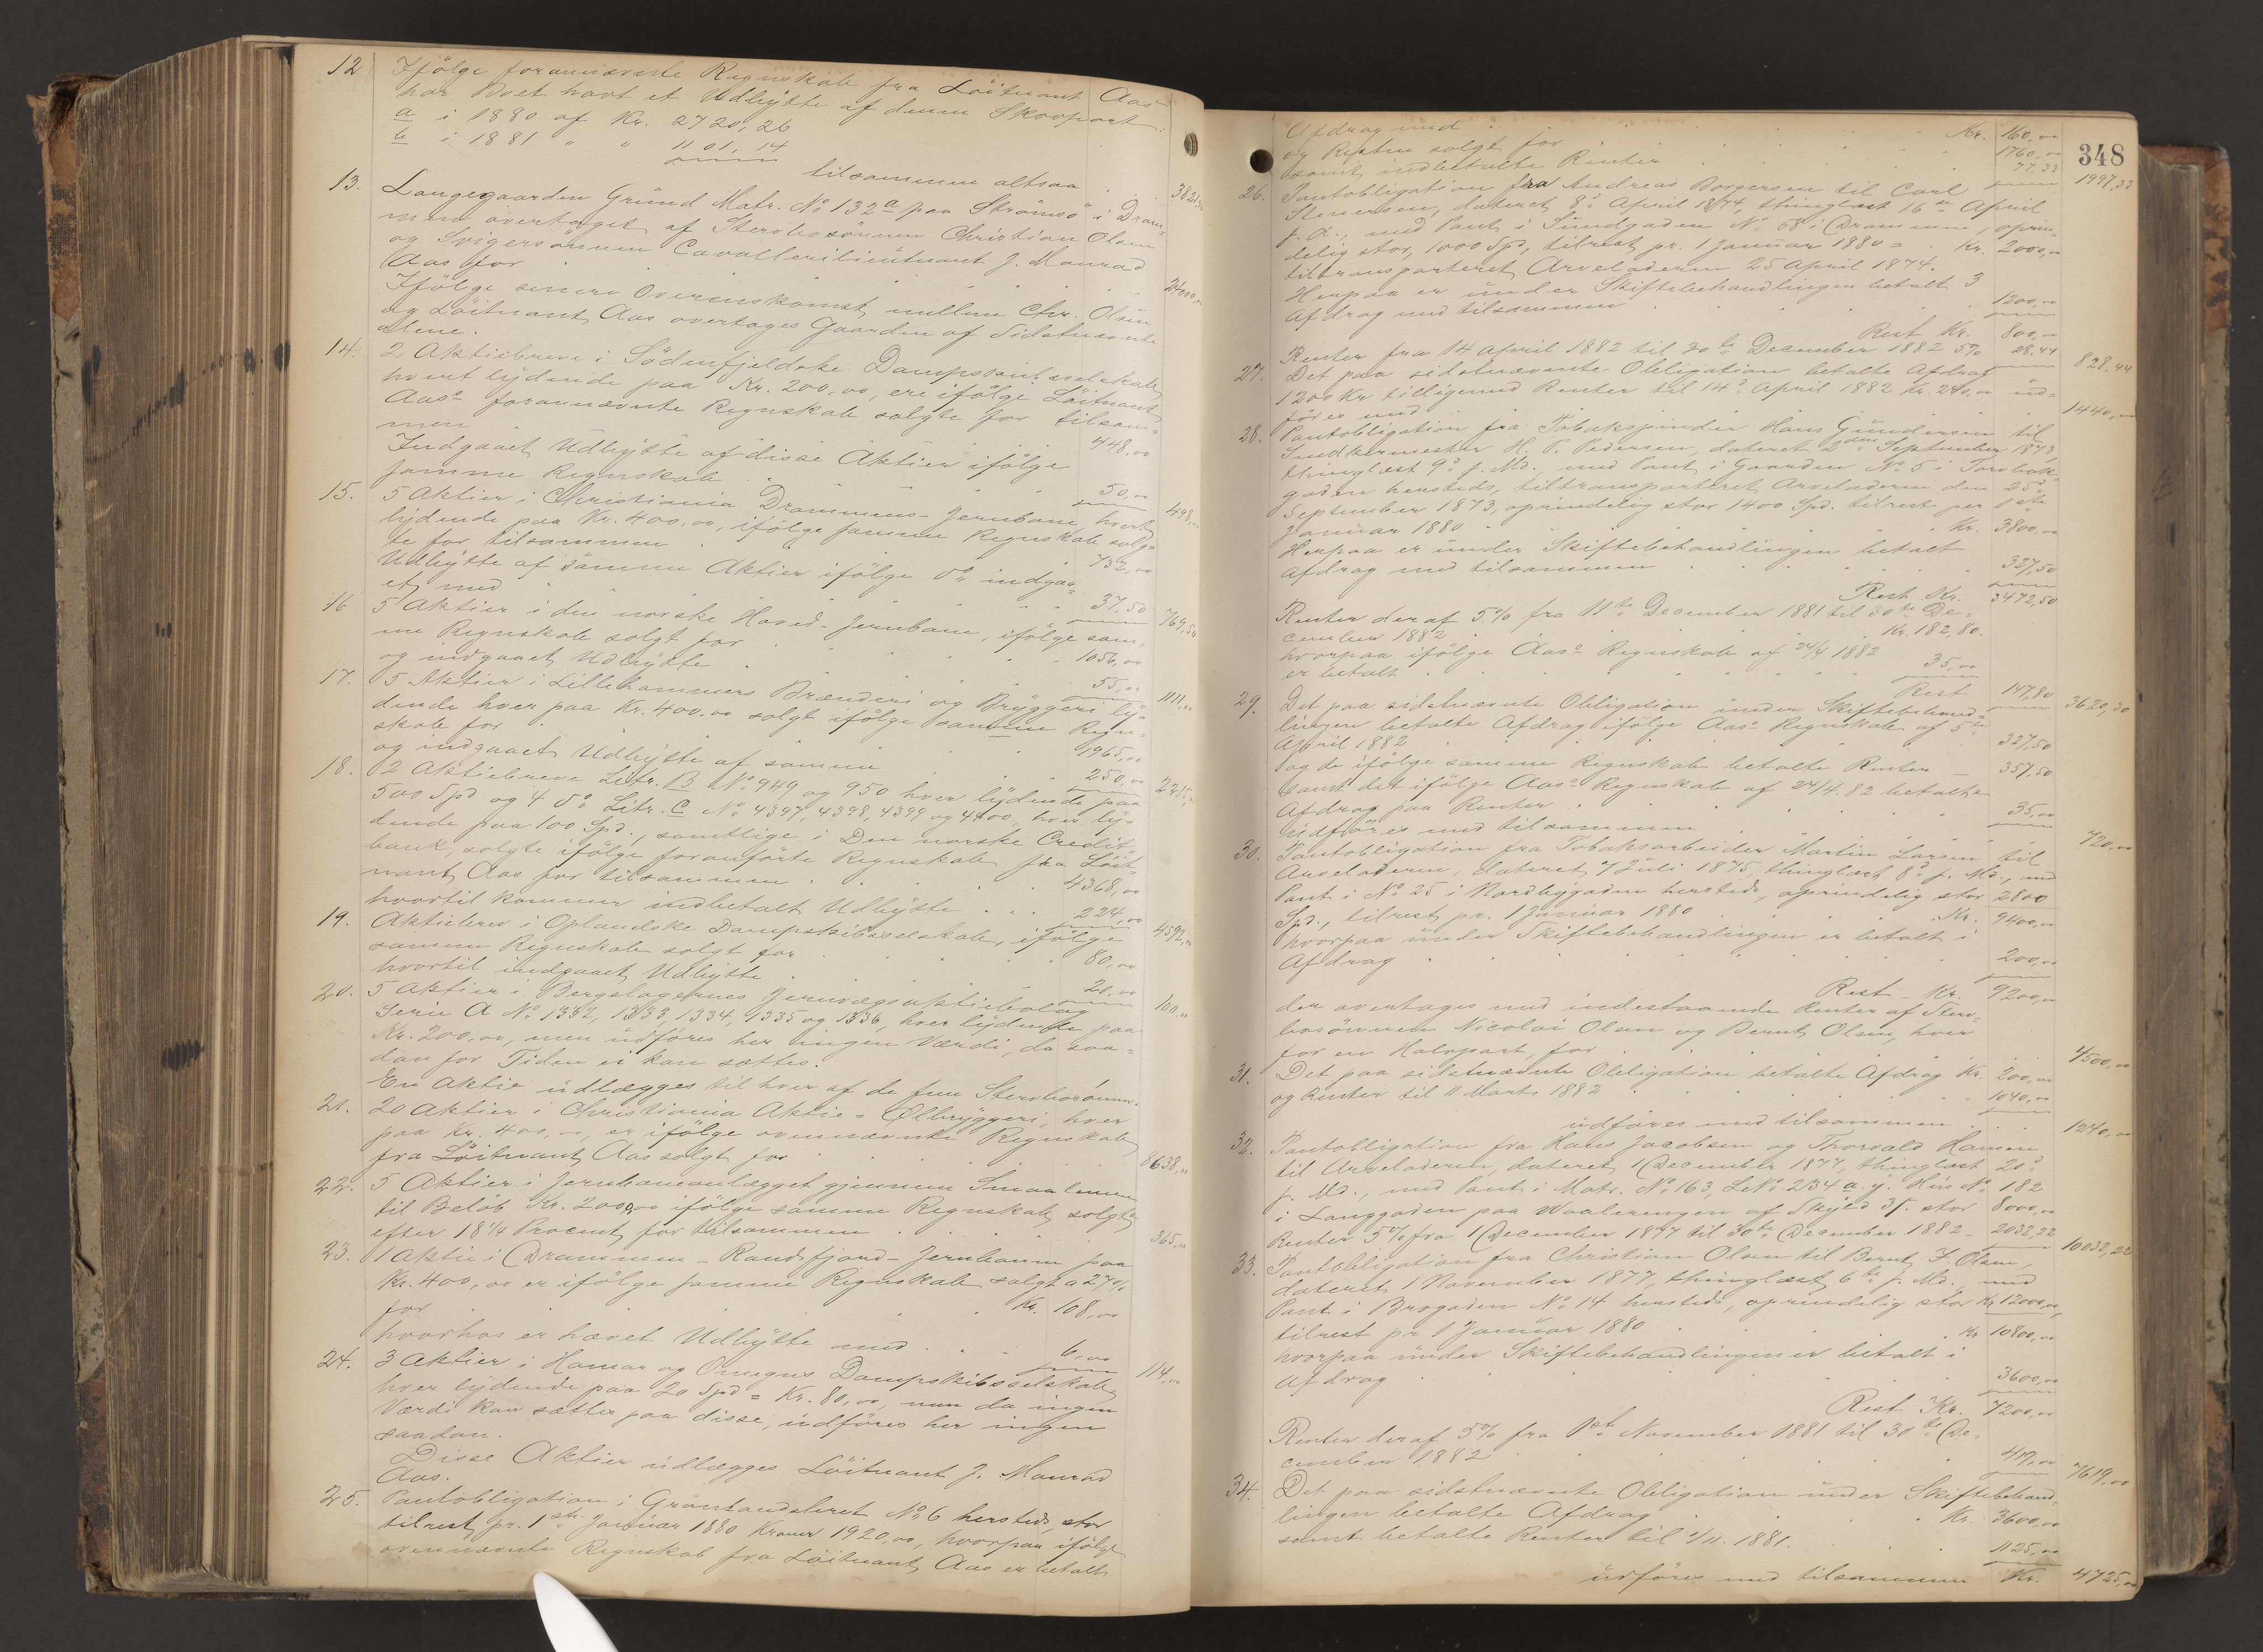 12 Ifölge forannævnte Regnskab fra Löitnant Aas
har Boet havt et Udbytte af denne Skovpart
a i 1880 af Kr. 2720,26
b i 1881 " " 1101,14
tilsammen altsaa . 3821,
13. Langegaarden Grund Matr. No 132a paa Strömsö i Dram-
men overtaget af Stervbosönnen Christian Olsen
og Svigersönnen Cavallerilieutnant J. Monrad
Aas for . . . . . 24000,00
Ifölge senere Overenskomst mellem Chr. Olsen
og Löitnant Aas overtages Gaarden af Sidstnævnte
alene.
14. 2 Aktiebreve i Södenfjeldske Dampskibsselskab,
hvert lydende paa Kr. 200,00, ere ifölge Löitnant
Aas's forannævnte Regnskab solgte for tilsam-
men 448,00
Indgaaet Udbytte af disse Aktier ifölge
samme Regnskab . . . 50,00 498,00
15. 5 Aktier i Christiania Drammens-Jernbane, hvert
lydende paa Kr. 400,00, ifölge samme Regnskab solg-
te for tilsammen . . . 732,00
Udbytte af samme Aktier ifölge do indgaa-
et med . . . 37,50 769,50
16 5 Aktier i den norske Hoved-Jernbane, ifölge sam-
me Regnskab solgt for . . . 1056,00
og indgaaet Udbytte . . . 55,00 1111,00
17. 5 Aktier i Lillehammers Brænderi og Bryggeri ly-
dende hver paa Kr. 400,00 solgt ifölge samme Regn-
skab for . . . 1965,00
og indgaaet Udbytte af samme . . . 250,00 2215,
18. 2 Aktiebreve Litr. B No 949 og 950 hver lydende paa
500 Spd og 4 do Litr. C No 4397, 4398, 4399 og 4400, hver ly-
dende paa 100 Spd., samtlige i Den norske Credit-
bank, solgte ifölge foranförte Regnskab fra Löit-
nant Aas for tilsammen . . . 4368,00
hvortil kommer indbetalt Udbytte . . . 224,00 4592,00
19. Aktiebrev i Oplandske Dampskibsselskab, ifölge
samme Regnskab solgt for . . . 80,00
hvortil indgaaet Udbytte . . . 20,00 100,00
20. 5 Aktier i Bergslagernes Jernvægsaktiebolag
Serie A No 1332, 1333, 1334, 1335 og 1336, hver lydende paa
Kr. 200,00, men udföres her ingen Værdi, da saa-
dan for Tiden ei kan sættes.
En Aktie udlægges til hver af de fem Stervbosönner.
21. 20 Aktier i Christiania Aktie-Ølbryggeri, hver
paa Kr. 400,00, er ifölge ovennævnte Regnskab
fra Löitnant Aas solgt for . . . 8638,00
22. 5 Aktier i Jernbaneanlægget gjennem Smaalenene
til Beløb Kr. 2000,00 ifölge samme Regnskab solgte
efter 18 1/4 Procent for tilsammen . . . 365,00
23. 1 Aktie i Drammen-Randsfjord-Jernbanen paa
Kr. 400,00 er ifölge samme Regnskab solgt a 27%
for . . . Kr. 108,00
hvorhos er hævet Udbytte med . . . 6,00 114,00
24. 3 Aktier i Hamar og Omegns Dampskibsselskab,
hver lydende paa 20 Spd = Kr. 80,00, men da ingen
Værdi kan sættes paa disse, udföres her ingen
saadan.
Disse Aktier udlægges Löitnant J. Monrad
Aas.
25. Pantobligation i Grönlandsleret No 6 hersteds, stor
tilrest pr. 1ste Januar 1880 Kroner 1920,00, hvorpaa ifölge
ovennævnte Regnskab fra Löitnant Aas er betalt
348
Afdrag med . . . Kr. 160,00
og Resten solgt for . . . 1760,00
samt indbetalte Renter . . . 77,33 1997,33
26. Pantobligation fra Andreas Borgersen til Carl
Stenersen, dateret 8de April 1874, thinglæst 16de April
s. A., med Pant i Sundgaden No 58 i Drammen, oprin-
delig stor, 1000 Spd, tilrest pr. 1 Januar 1880 = Kr. 2000,00
tiltransporteret Arveladeren 25 April 1874.
Herpaa er under Skiftebehandlingen betalt 3
Afdrag med tilsammen . . . 1200,00
Rest Kr. 800,00
Renter fra 14 April 1882 til 30te December 1882 5% 28,44 828,44
27. Det paa sidstnævnte Obligation betalte Afdrag
1200 Kr tilligemed Renter til 14de April 1882 Kr. 240,00 ud-
föres med . . . 1440,00
28. Pantobligation fra Tobakspinder Hans Gundersen til
Snedkermester H. P. Pedersen, dateret 2den September 1873
thinglæst 9de s. Md., med Pant i Gaarden No 5 i Torvbak-
gaden hersteds, tiltransporteret Arveladeren den 25de
September 1873, oprindelig stor 1400 Spd. tilrest per 1ste
Januar 1880 . . . Kr. 3800,00
Herpaa er under Skiftebehandlingen betalt
Afdrag med tilsammen . . . 327,50
Rest Kr. 3472,50
Renter deraf 5% fra 11te December 1881 til 30te De-
cember 1882 . . . Kr. 182,80.
hvorpaa ifölge Aas's Regnskab af 24/4 1882
er betalt . . . 35,00
Rest 147,80 3620,30
29. Det paa sidstnævnte Obligation under Skiftebehand-
lingen betalte Afdrag ifölge Aas's Regnskab af 5te
April 1882 . . . 327,50
og de ifölge samme Regnskab betalte Renter — 357,50
samt det ifölge Aas's Regnskab af 24/4 82 betalte
Afdrag paa Renter . . . 35,00
udföres med tilsammen . . . 720,00
30. Pantobligation fra Tobaksarbeider Martin Larsen til
Arveladeren, dateret 7 Juli 1875, thinglæst 8de s. Md., med
Pant i No 25 i Nordbygaden hersteds, oprindelig stor 2800
Spd., tilrest pr. 1 Januar 1880 . . . Kr. 9400,00
hvorpaa under Skiftebehandlingen er betalt i
Afdrag . . . 200,00
Rest - Kr. 9200,00
der overtages med indestaaende Renter af Sterv-
bosönnerne Nicolai Olsen og Bernt Olsen, hver
for en Halvpart, for . . . 4500,00
31. Det paa sidstnævnte Obligation betalte Afdrag Kr. 200,00
og Renter til 11 Marts 1882 . . . 1040,00
udföres med tilsammen . . . 1240,00
32. Pantobligation fra Hans Jacobsen og Thorvald Hansen
til Arveladeren, dateret 1 December 1877, thinglæst 20de
s. Md., med Pant i Matr. No 163, LNo 234 a. g. Hus No 182
i Langgaden paa Waalerengen af Skyld 3/. stor 8000,00
Renter 5% fra 1 December 1877 til 30te December 1882 - 2032,22 10032,22
33. Pantobligation fra Christian Olsen til Bernt F. Olsen,
dateret 1 November 1877, thinglæst 6te s. Md., med
Pant i Brogaden No 14 hersteds, oprindelig stor Kr 12000,00,
tilrest pr 1 Januar 1880 . . . Kr 10800,00
hvorpaa under Skiftebehandlingen er betalt i
Afdrag . . . 3600,00
Rest Kr. 7200,00
Renter deraf 5% fra 1ste November 1881 til 30te De-
cember 1882 . . . 419,00 7619,00
34. Det paa sidstnævnte Obligation under Skiftebehand-
lingen betalte Afdrag . . . Kr. 3600,00
samt betalte Renter til 1/11. 1881. . . 1125,00
udföres med tilsammen Kr. 4725,00